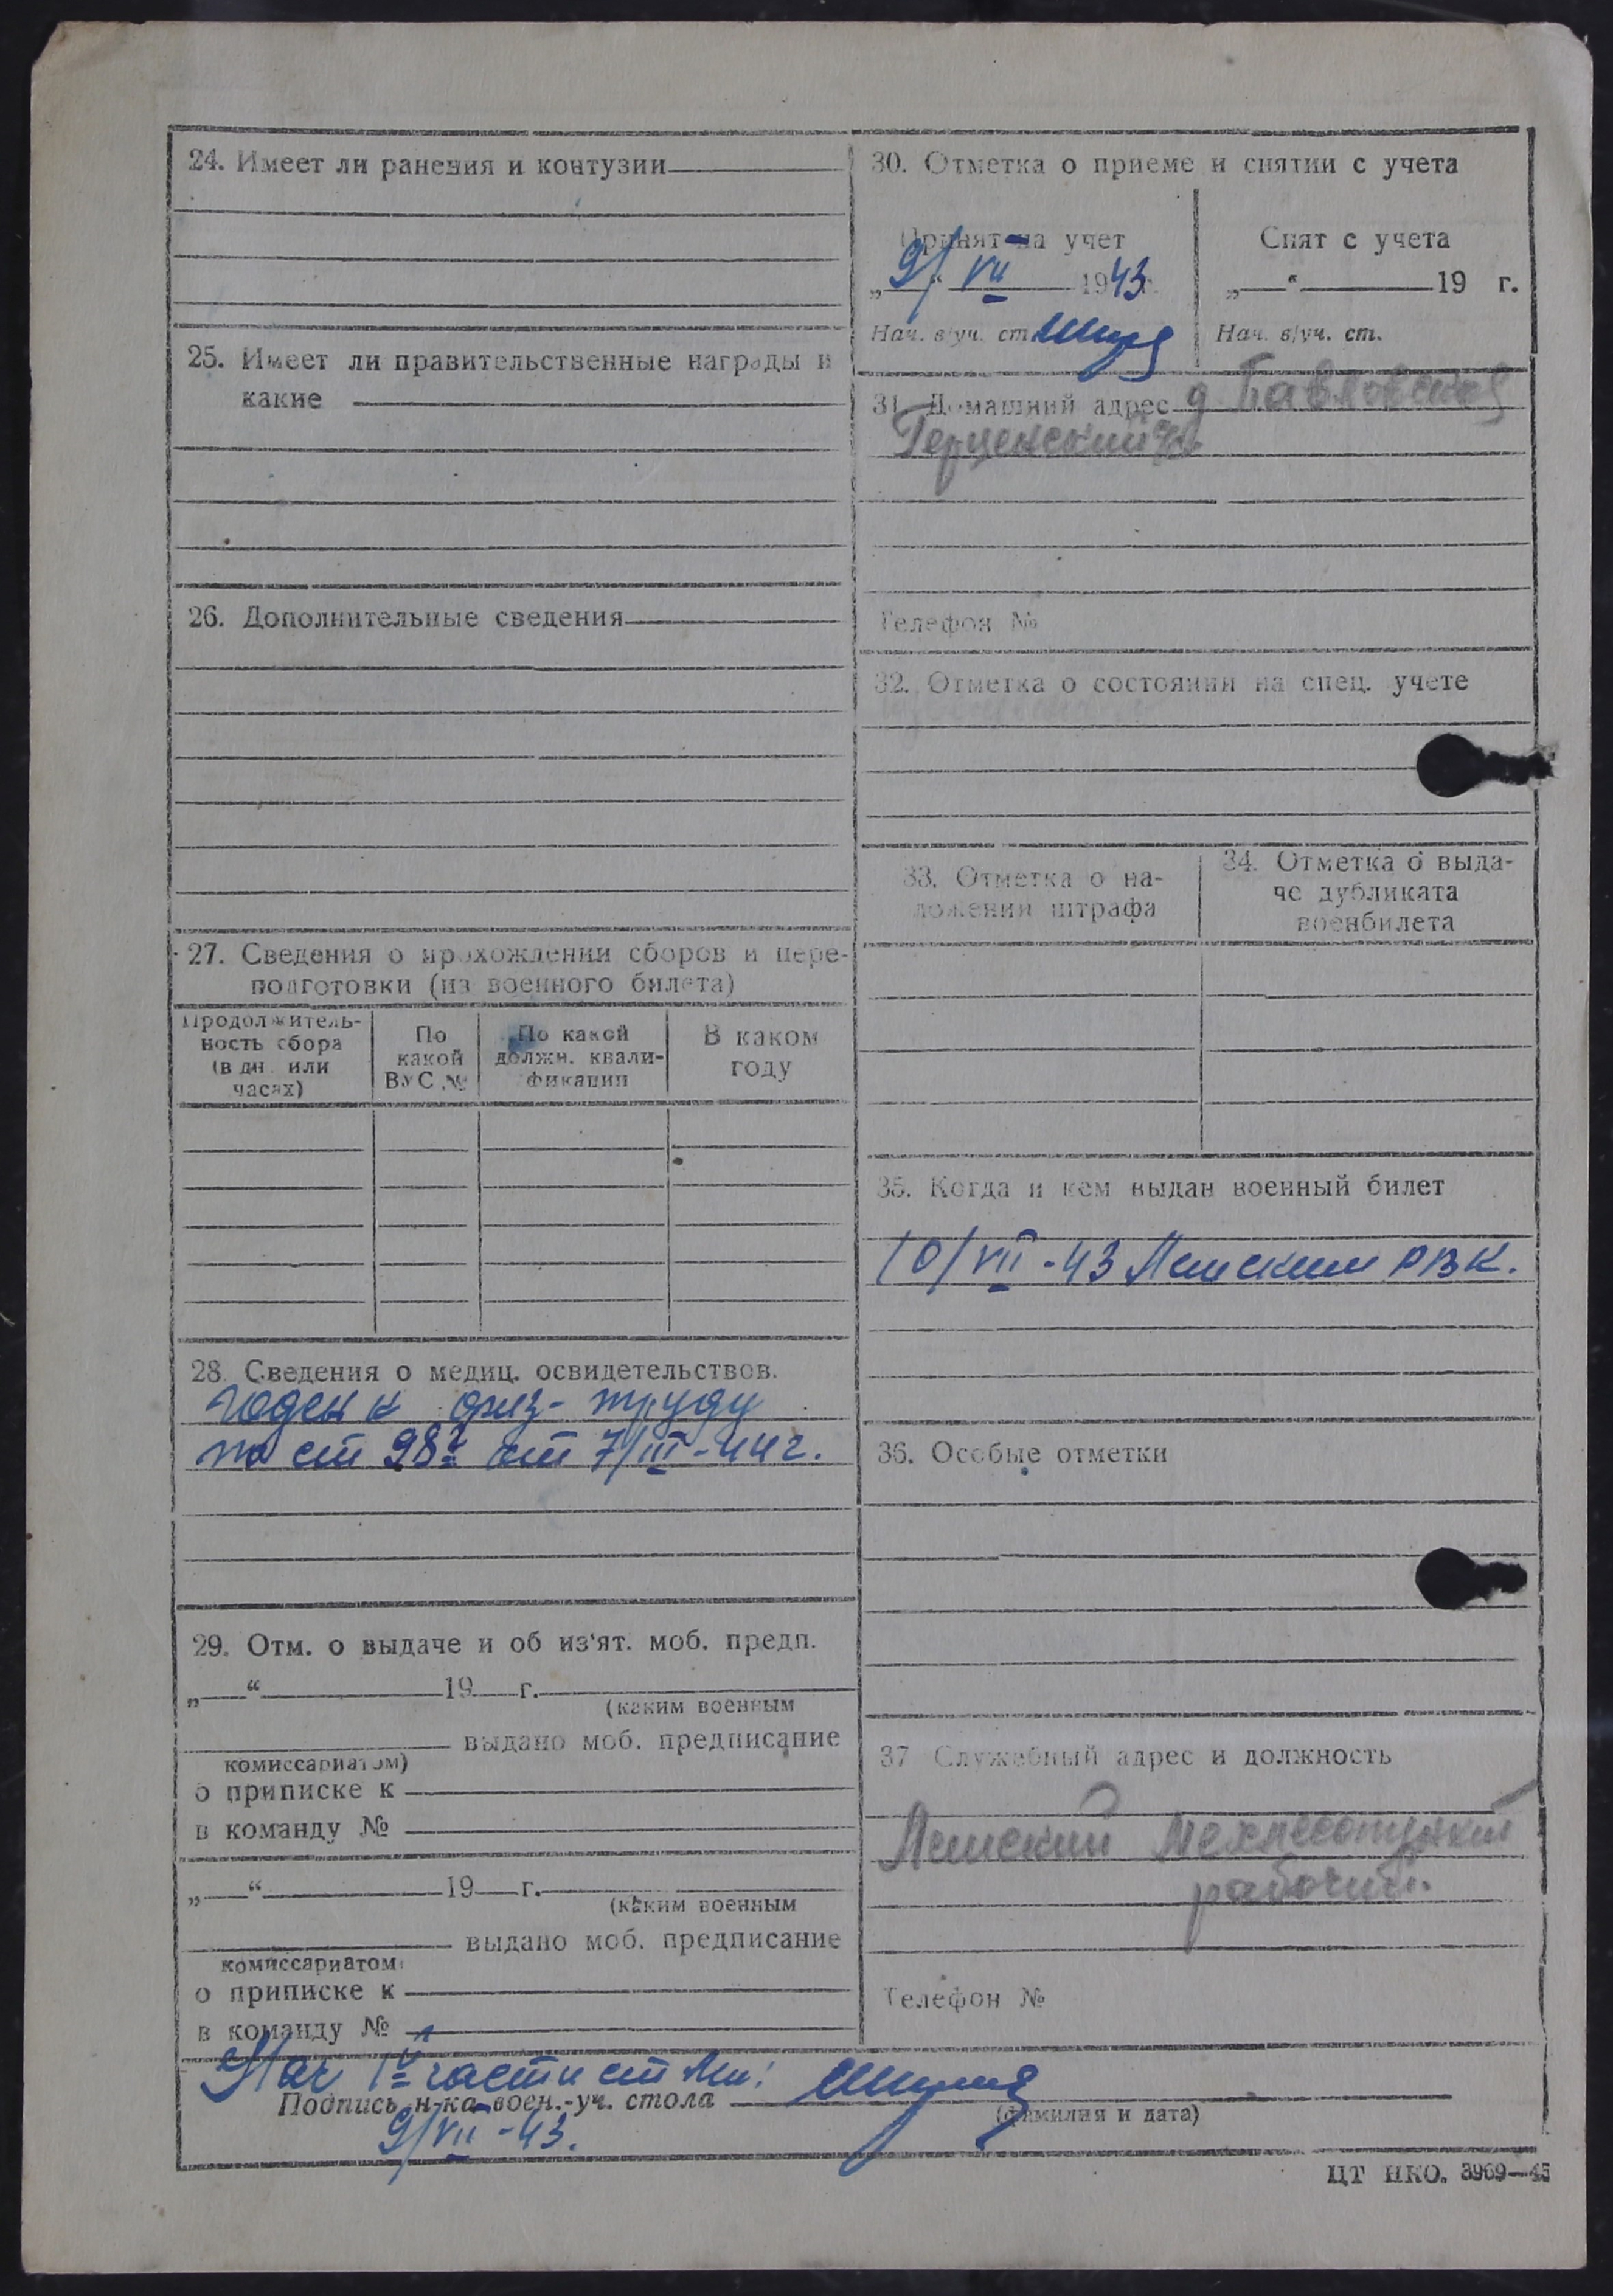 24. Имеет ли ранения и контузии
25. Имеет ли правительственные награды и
какие
26. Дополнительные сведения
27. Сведения о прохождении сборов и пере-
подготовки (из военного билета)
Продолжитель-
ность сбора
(в дн. или
часах)
По
какой
ВУС №
По какой
должн. квали-
фикации
В каком
году
28. Сведения о медиц. освидетельствов.
годен к физ- труду
по ст 98 от 7/III-44 г.
29. Отм. о выдаче и об из‘ят. моб. предп.
„ “ 19 г.
(каким военным
выдано моб. предписание
комиссариатом)
о приписке к
в команду №
„ “ 19 г.
(каким военным
выдано моб. предписание
комиссариатом)
о приписке к
в команду №
30. Отметка о приеме и снятии с учета
Принят на учет
„9“ VII 1943 г.
Нач. в/уч. ст.
Снят с учета
„ “ 19 г.
Нач. в/уч. ст.
31. Домашний адрес д
Герценский с/с
Телефон №
32. Отметка о состоянии на спец. учете
33. Отметка о на-
ложении штрафа
34. Отметка о выда-
че дубликата
военбилета
35. Когда и кем выдан военный билет
10/VII-43 РВК.
36. Особые отметки
37 Служебный адрес и должность
Мехлесопункт
рабочий.
Телефон №
Нач части
Подпись н-ка воен.-уч. стола
(фамилия и дата)
9/VII-43.
ЦТ НКО. 3969—43